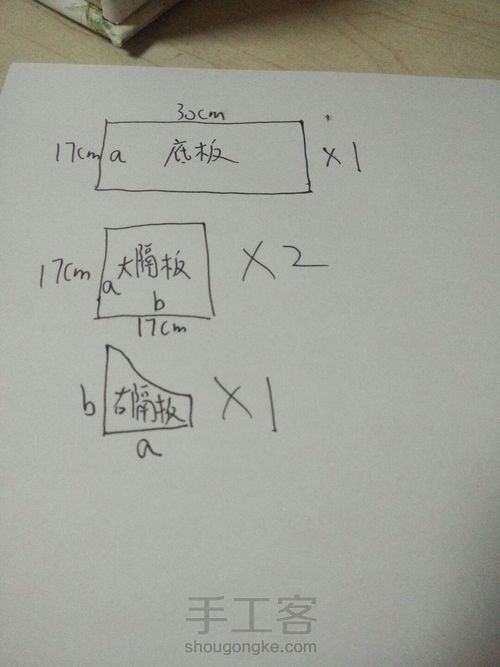 30cm
17cm a 底板 ×1
17cm a 大隔板 ×2
b
17cm
b 右隔板 ×1
a
手工客
shougongke.com